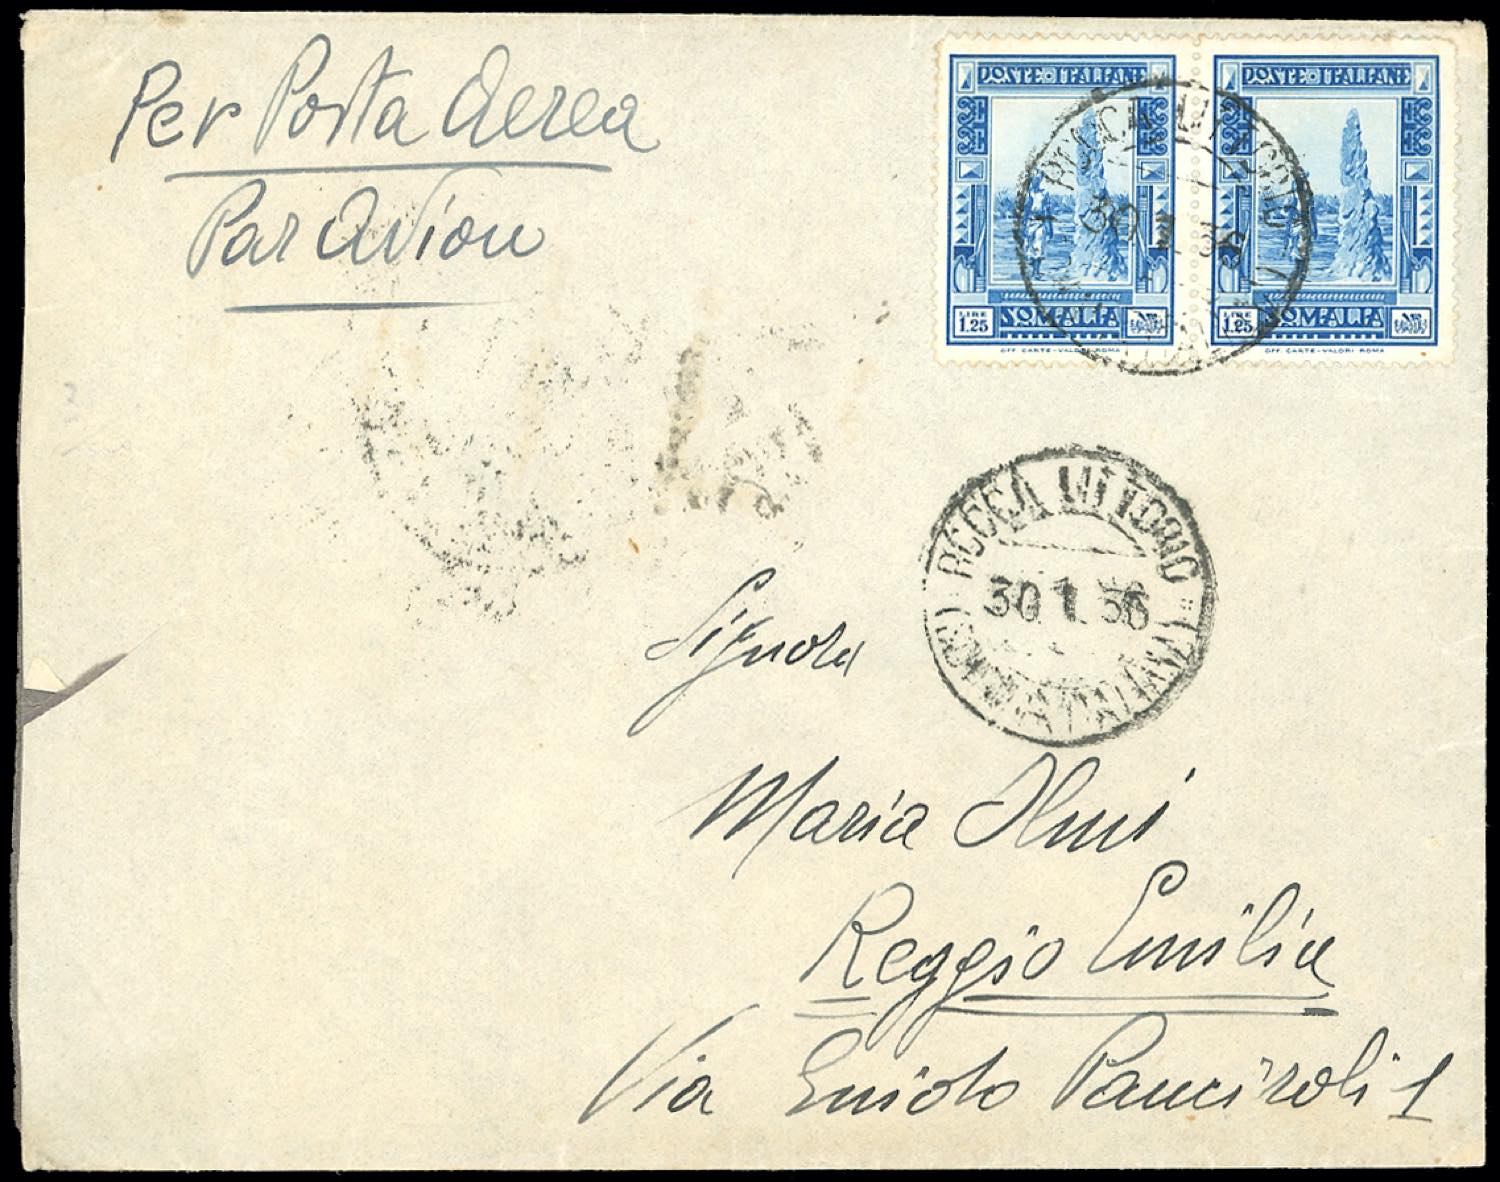 Per Posta Aerea
Par Avion
POSTE ITALIANE POSTE ITALIANE
LIRE 1.25 SOMALIA LIRE 1.25 SOMALIA
OFF. CARTE-VALORI ROMA OFF. CARTE-VALORI ROMA
ROCCA LITTORIO
30 1 36
ROCCA LITTORIO
30.1.36
Signora
Maria Olmi
Reggio Emilia
Via Guido Panciroli 1